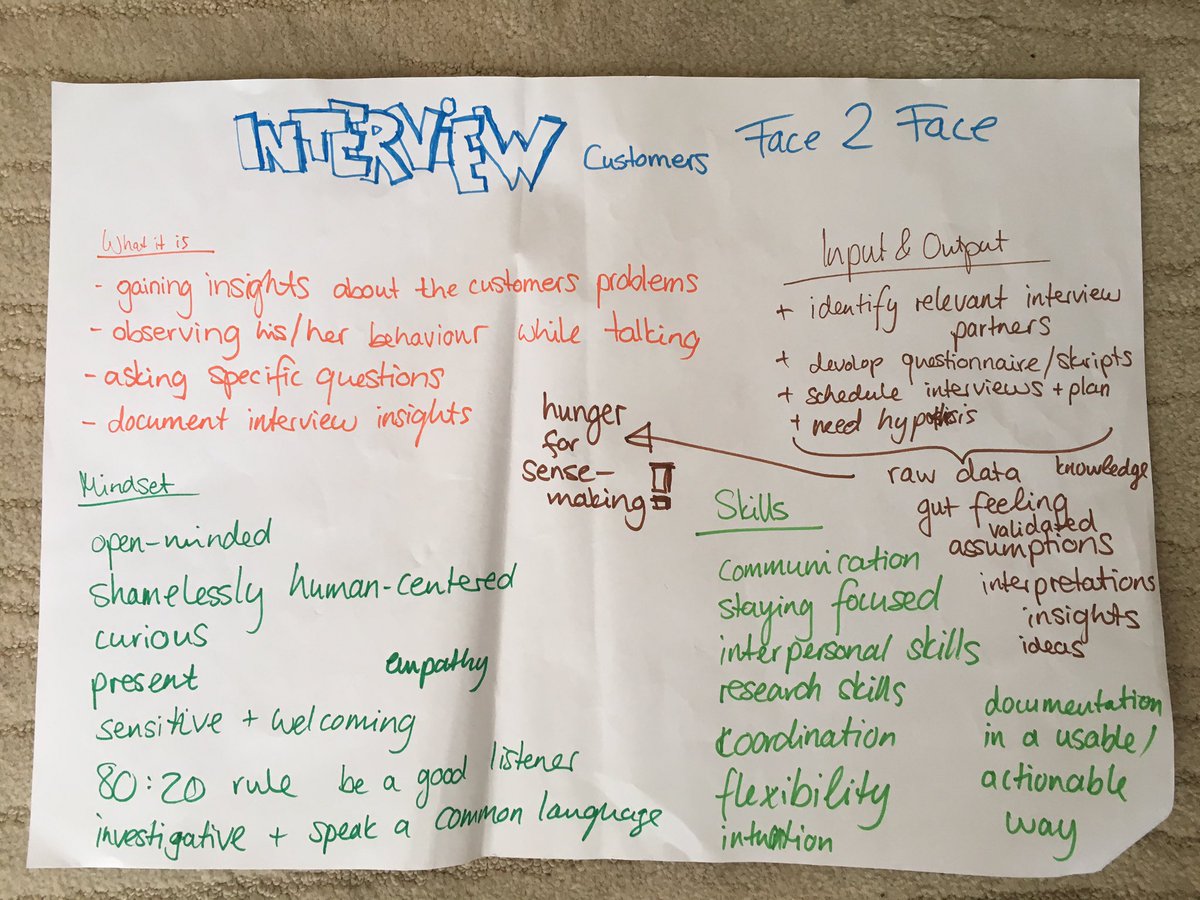 INTERVIEW Customers Face 2 Face
What it is
- gaining insights about the customers problems
- observing his/her behaviour while talking
- asking specific questions
- document interview insights
Input & Output
+ identify relevant interview
partners
+ develop questionnaire/skripts
+ schedule interviews + plan
+ need hypothesis
raw data knowledge
gut feeling
validated
assumptions
interpretations
insights
ideas
hunger
for
sense-
making!
Mindset
open-minded
shamelessly human-centered
curious
present empathy
sensitive + welcoming
80:20 rule be a good listener
investigative + speak a common language
Skills
communication
staying focused
interpersonal skills
research skills
coordination
flexibility
documentation
in a usable/
actionable
way